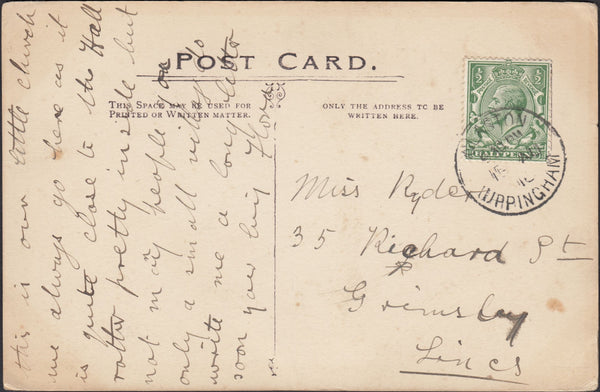 POST CARD.
THIS SPACE MAY BE USED FOR
PRINTED OR WRITTEN MATTER.
ONLY THE ADDRESS TO BE
WRITTEN HERE.
this is our little church
we always go here as it
is quite close to the Hall
rather pretty inside but
not many people on
only a small village do
write me a long letter
soon your lovg Flora
Miss Ryder
35 Richard St
Grimsby
Lincs
½ ½
HALFPENNY
UPPINGHAM